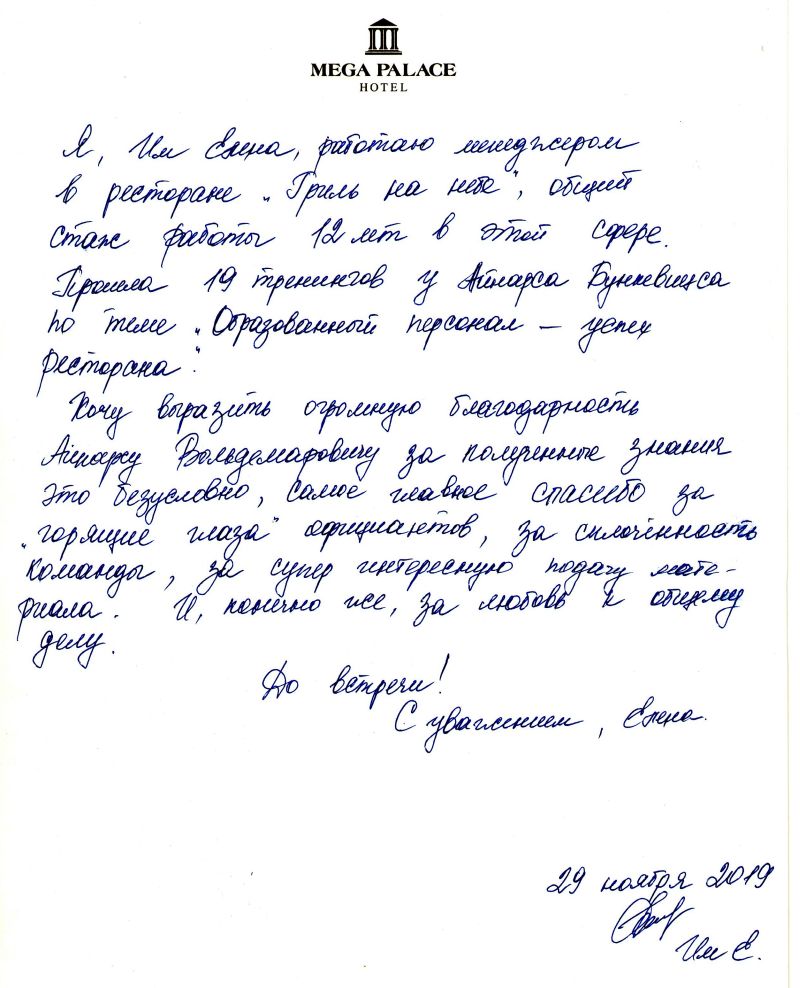 MEGA PALACE
HOTEL
Я, Им Елена, работаю менеджером
в ресторане „Гриль на небе", общий
стаж работы 12 лет в этой сфере.
Прошла 19 тренингов у Айнарса Бункевицса
по теме „Образованный персонал – успех
ресторана".
Хочу выразить огромную благодарность
Айнарсу Вольдемаровичу за полученные знания
это безусловно, самое главное спасибо за
„горящие глаза" официантов, за сплочённость
команды, за супер интересную подачу мате-
риала. И, конечно же, за любовь к общему
делу.
До встречи!
С уважением, Елена.
29 ноября 2019
Им Е.